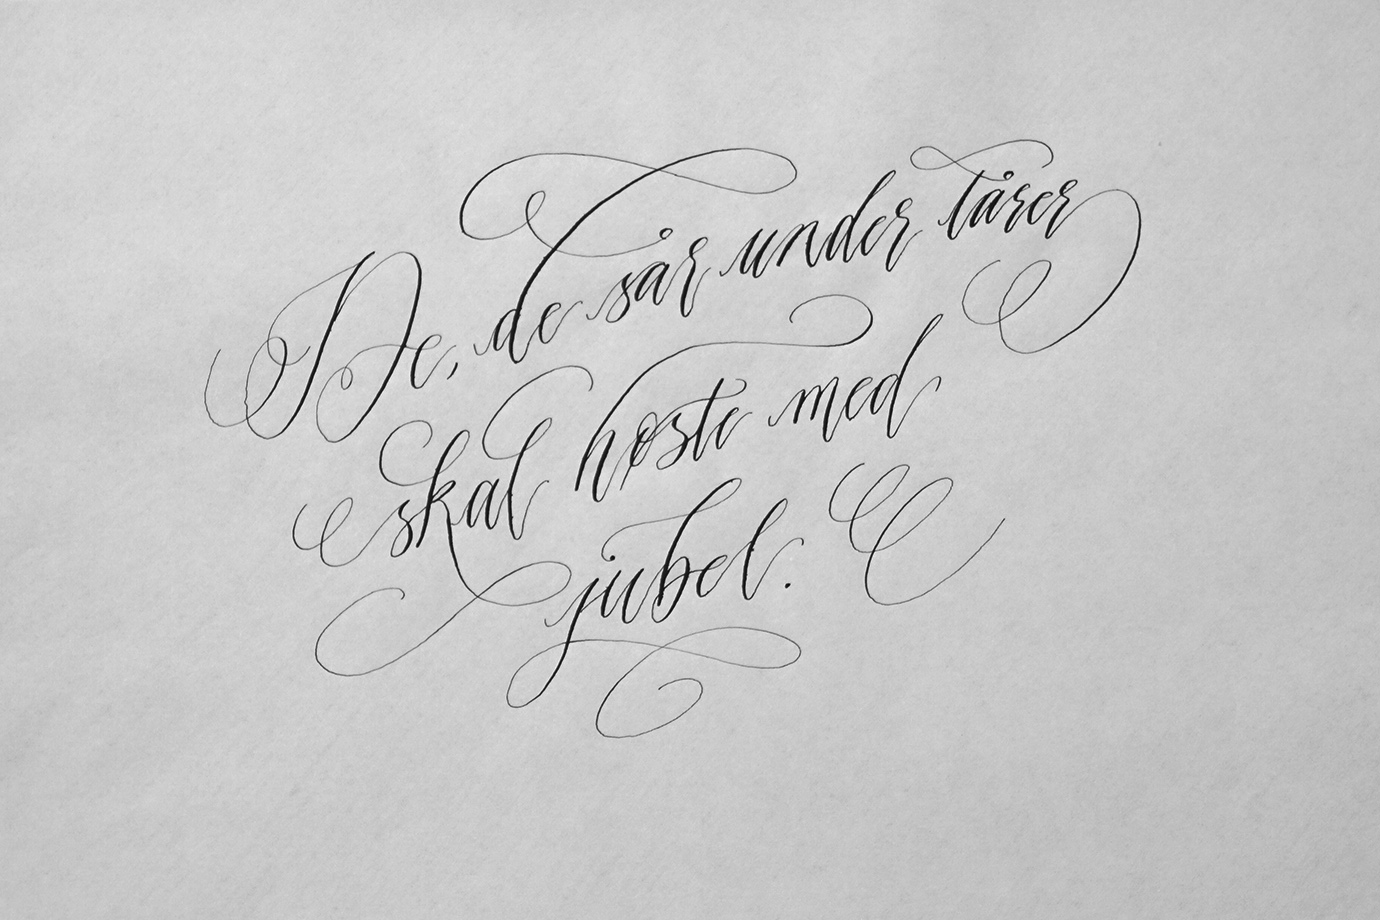 De, de sår under tårer
skal høste med
jubel.